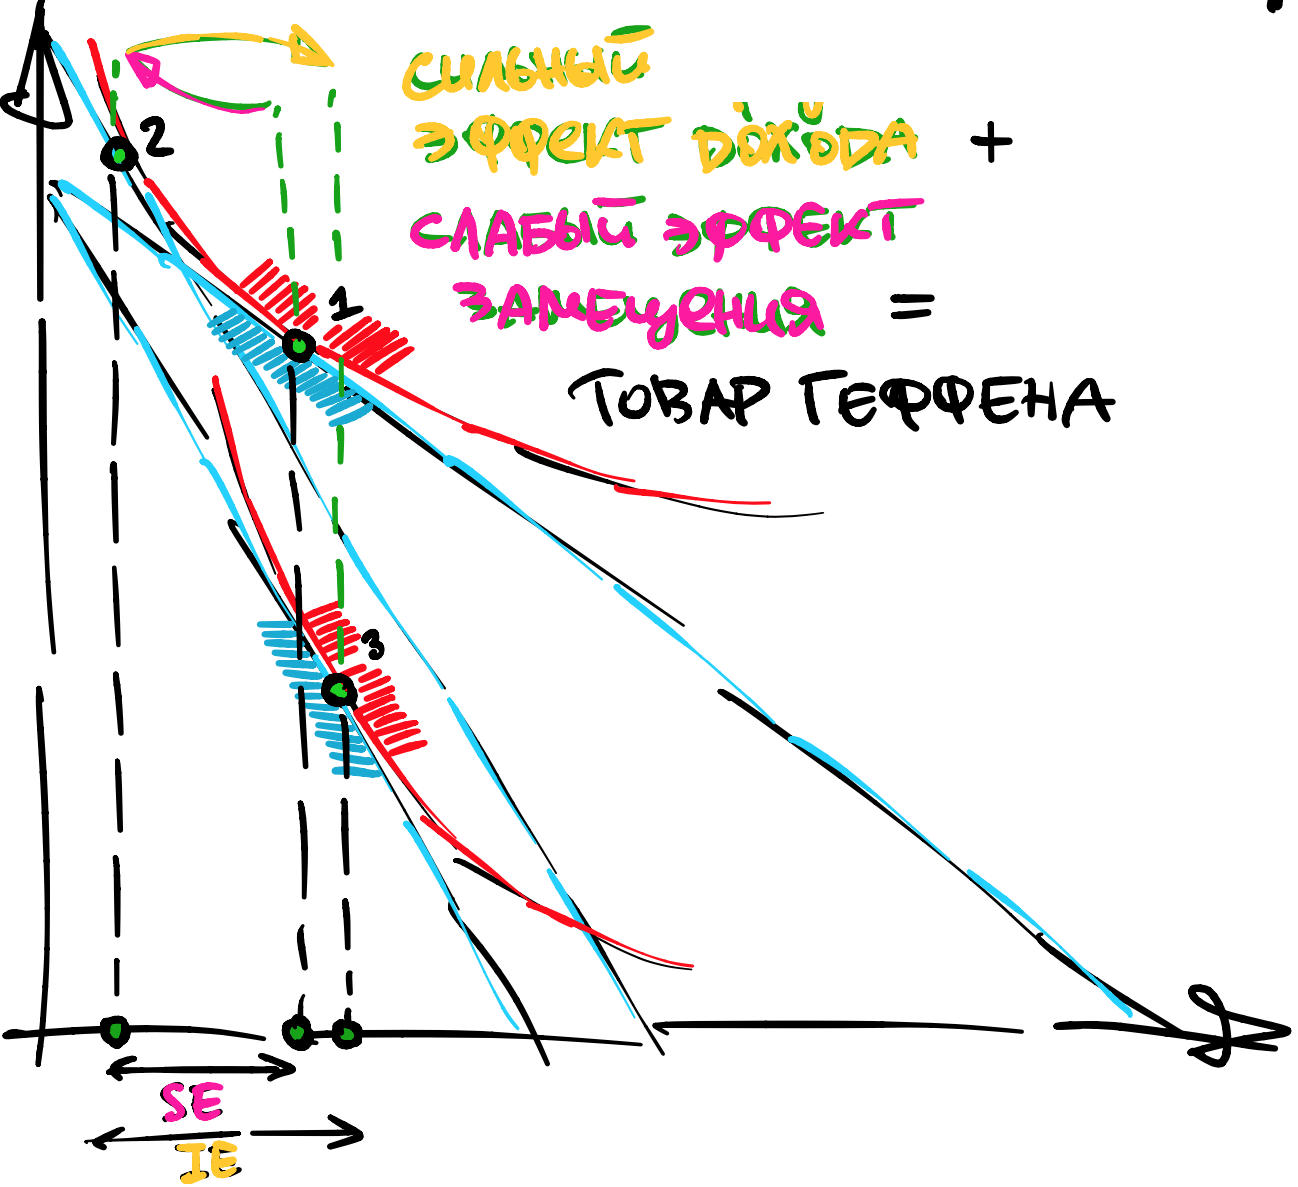 СИЛЬНЫЙ
ЭФФЕКТ ДОХОДА +
СЛАБЫЙ ЭФФЕКТ
ЗАМЕЩЕНИЯ =
ТОВАР ГЕФФЕНА
2
1
3
SE
IE